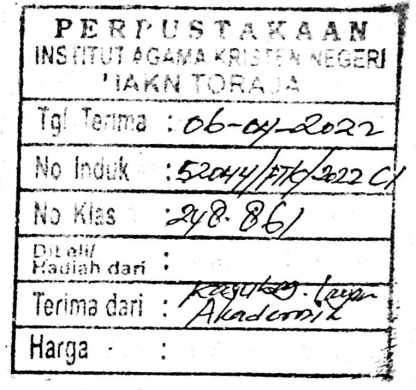 PERPUSTAKAAN
INSTITUT AGAMA KRISTEN NEGERI
IAKN TORAJA
Tgl Terima : 06-04-2022
No Induk : 52044/FTK/2022 C1
No Klas : 248.861
Di beli/
Hadiah dari :
Terima dari :
Akademik
Harga :